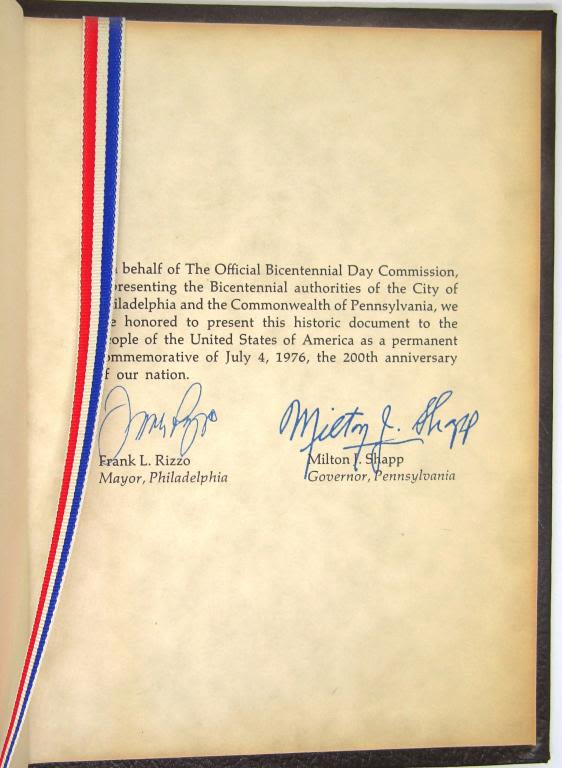 behalf of The Official Bicentennial Day Commission,
presenting the Bicentennial authorities of the City of
iladelphia and the Commonwealth of Pennsylvania, we
e honored to present this historic document to the
ople of the United States of America as a permanent
ommemorative of July 4, 1976, the 200th anniversary
f our nation.
Milton J. Shapp
Frank L. Rizzo Milton J. Shapp
Mayor, Philadelphia Governor, Pennsylvania